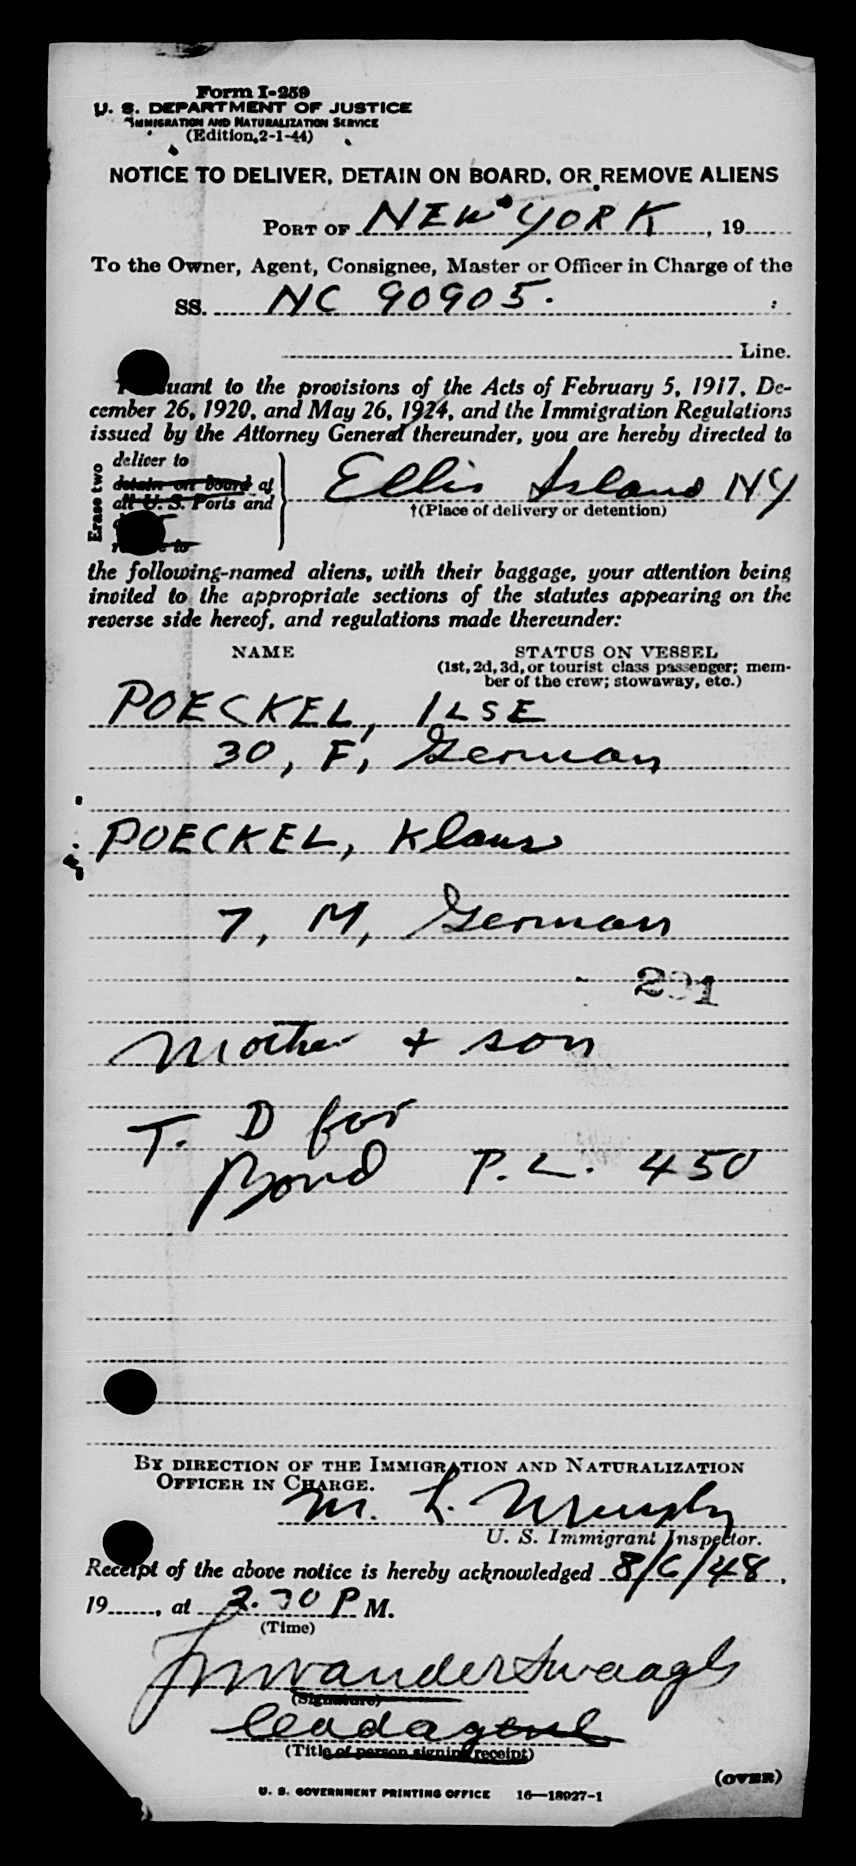 Form I-259
U. S. DEPARTMENT OF JUSTICE
IMMIGRATION AND NATURALIZATION SERVICE
(Edition 2-1-44)
NOTICE TO DELIVER, DETAIN ON BOARD, OR REMOVE ALIENS
PORT OF NEW YORK, 19
To the Owner, Agent, Consignee, Master or Officer in Charge of the
SS. NC 90905. ;
Line.
Pursuant to the provisions of the Acts of February 5, 1917, De-
cember 26, 1920, and May 26, 1924, and the Immigration Regulations
issued by the Attorney General thereunder, you are hereby directed to
Erase two
deliver to
detain on board at
all U. S. Ports and
Ellis Island NY
†(Place of delivery or detention)
the following-named aliens, with their baggage, your attention being
invited to the appropriate sections of the statutes appearing on the
reverse side hereof, and regulations made thereunder:
NAME STATUS ON VESSEL
(1st, 2d, 3d, or tourist class passenger; mem-
ber of the crew; stowaway, etc.)
POECKEL, ILSE
30, F, German
POECKEL, Klaus
7, M, German
291
Mother + son
T. D for
Bond P.L. 450
BY DIRECTION OF THE IMMIGRATION AND NATURALIZATION
OFFICER IN CHARGE.
M. L. Murphy
U. S. Immigrant Inspector.
Receipt of the above notice is hereby acknowledged 8/6/48,
19, at 2.30 P M.
(Time)
(Signature)
(Title of person signing receipt)
(OVER)
U. S. GOVERNMENT PRINTING OFFICE 16—18927-1